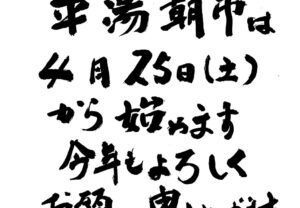 平湯朝市は
4月25日(土)
から始めます
今年もよろしく
お願い申し上げます